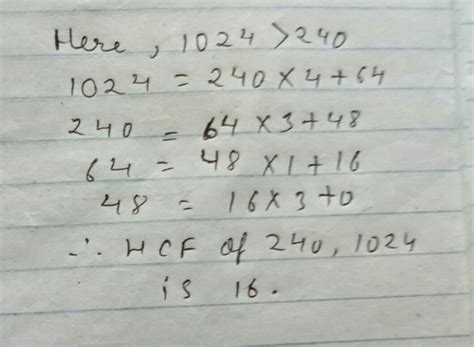 Here, 1024 > 240
1024 = 240 × 4 + 64
240 = 64 × 3 + 48
64 = 48 × 1 + 16
48 = 16 × 3 + 0
∴ HCF of 240, 1024
is 16.